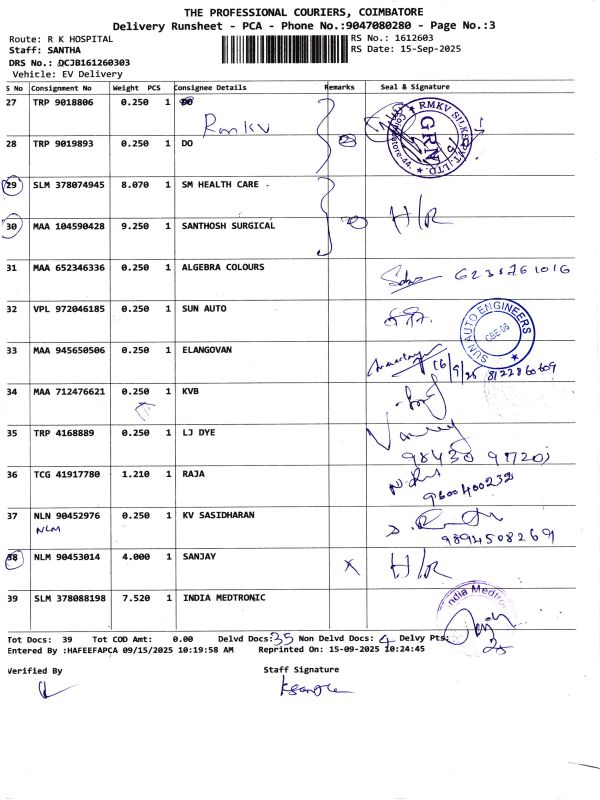 THE PROFESSIONAL COURIERS, COIMBATORE
Delivery Runsheet - PCA - Phone No.:9047080280 - Page No.:3
Route: R K HOSPITAL
RS No.: 1612603
Staff: SANTHA
RS Date: 15-Sep-2025
DRS No.: DCJB161260303
Vehicle: EV Delivery
S No Consignment No Weight PCS Consignee Details Remarks Seal & Signature
27 TRP 9018806 0.250 1 DO
RmKV
RMKV SILKS PVT. LTD.
GRN
28 TRP 9019893 0.250 1 DO
29 SLM 378074945 8.070 1 SM HEALTH CARE
H/R
30 MAA 104590428 9.250 1 SANTHOSH SURGICAL
31 MAA 652346336 0.250 1 ALGEBRA COLOURS
32 VPL 972046185 0.250 1 SUN AUTO
SUN AUTO ENGINEERS
CBE-06
33 MAA 945650506 0.250 1 ELANGOVAN
16/9/25 8122860609
34 MAA 712476621 0.250 1 KVB
35 TRP 4168889 0.250 1 LJ DYE
36 TCG 41917780 1.210 1 RAJA
9600400232
37 NLN 90452976 0.250 1 KV SASIDHARAN
NLM
9894508269
38 NLM 90453014 4.000 1 SANJAY X H/R
39 SLM 378088198 7.520 1 INDIA MEDTRONIC
India Medtronic
Tot Docs: 39 Tot COD Amt: 0.00 Delvd Docs: 35 Non Delvd Docs: 4 Delvy Pts:
25
Entered By :HAFEEFAPCA 09/15/2025 10:19:58 AM Reprinted On: 15-09-2025 10:24:45
Verified By Staff Signature